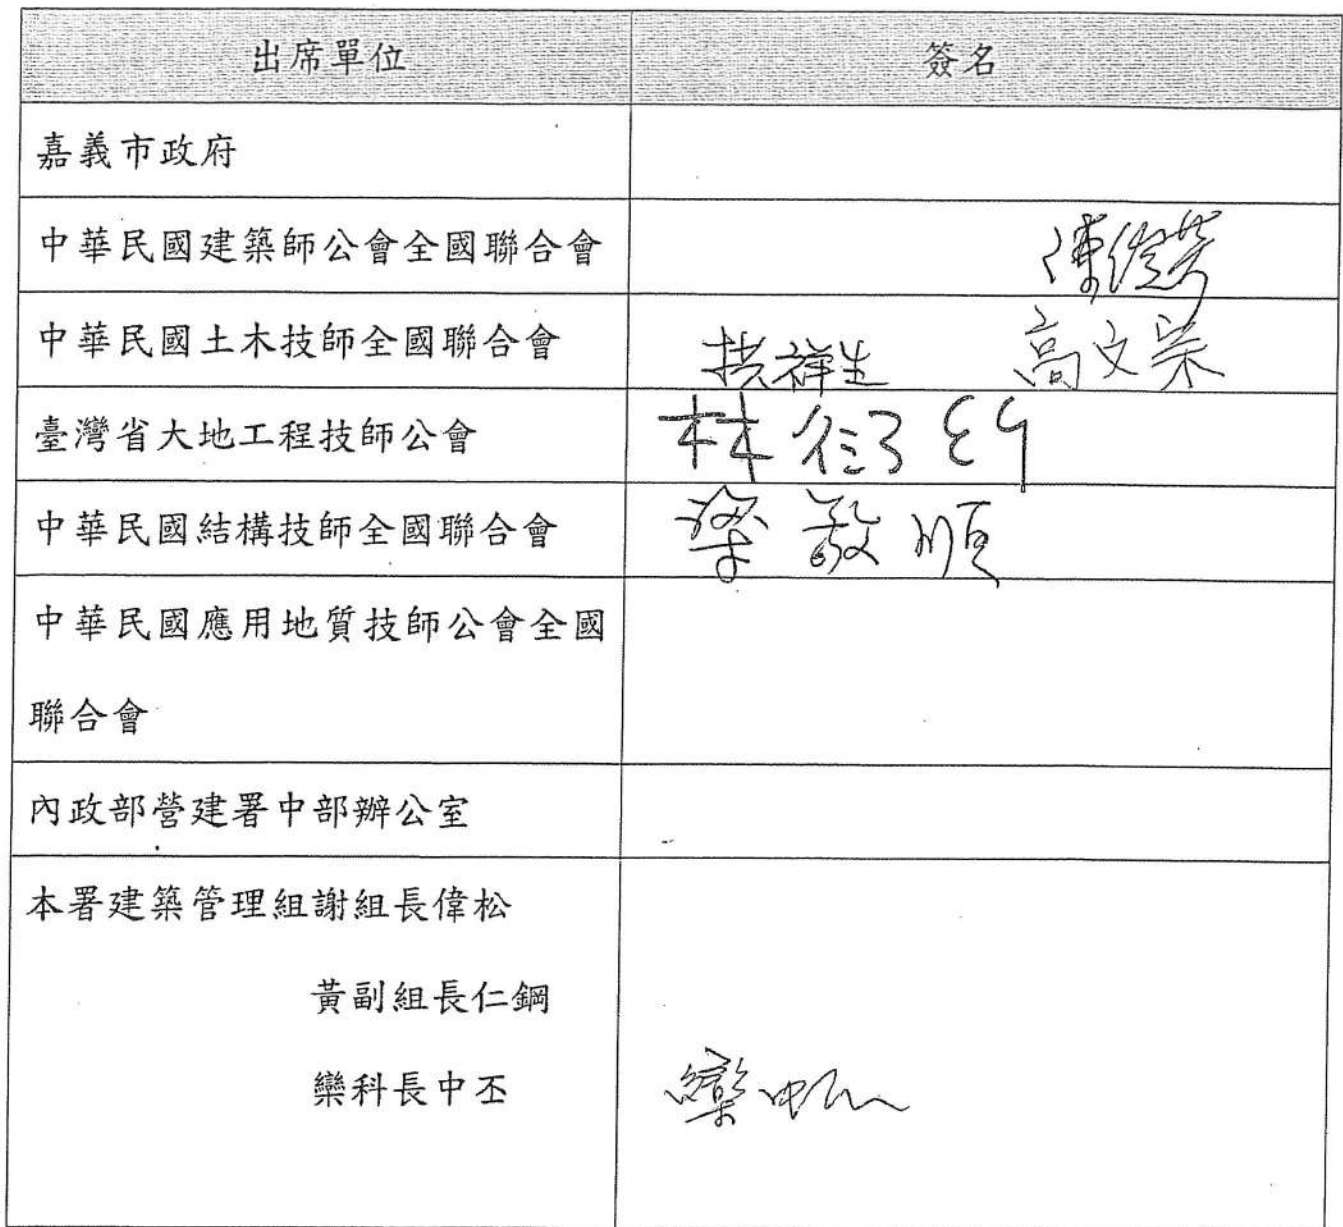 出席單位
簽名
嘉義市政府
中華民國建築師公會全國聯合會
中華民國土木技師全國聯合會
拱祥生 高文宗
臺灣省大地工程技師公會
林衍
中華民國結構技師全國聯合會
梁敬順
中華民國應用地質技師公會全國
聯合會
內政部營建署中部辦公室
本署建築管理組謝組長偉松
黃副組長仁鋼
欒科長中丕
欒中丕